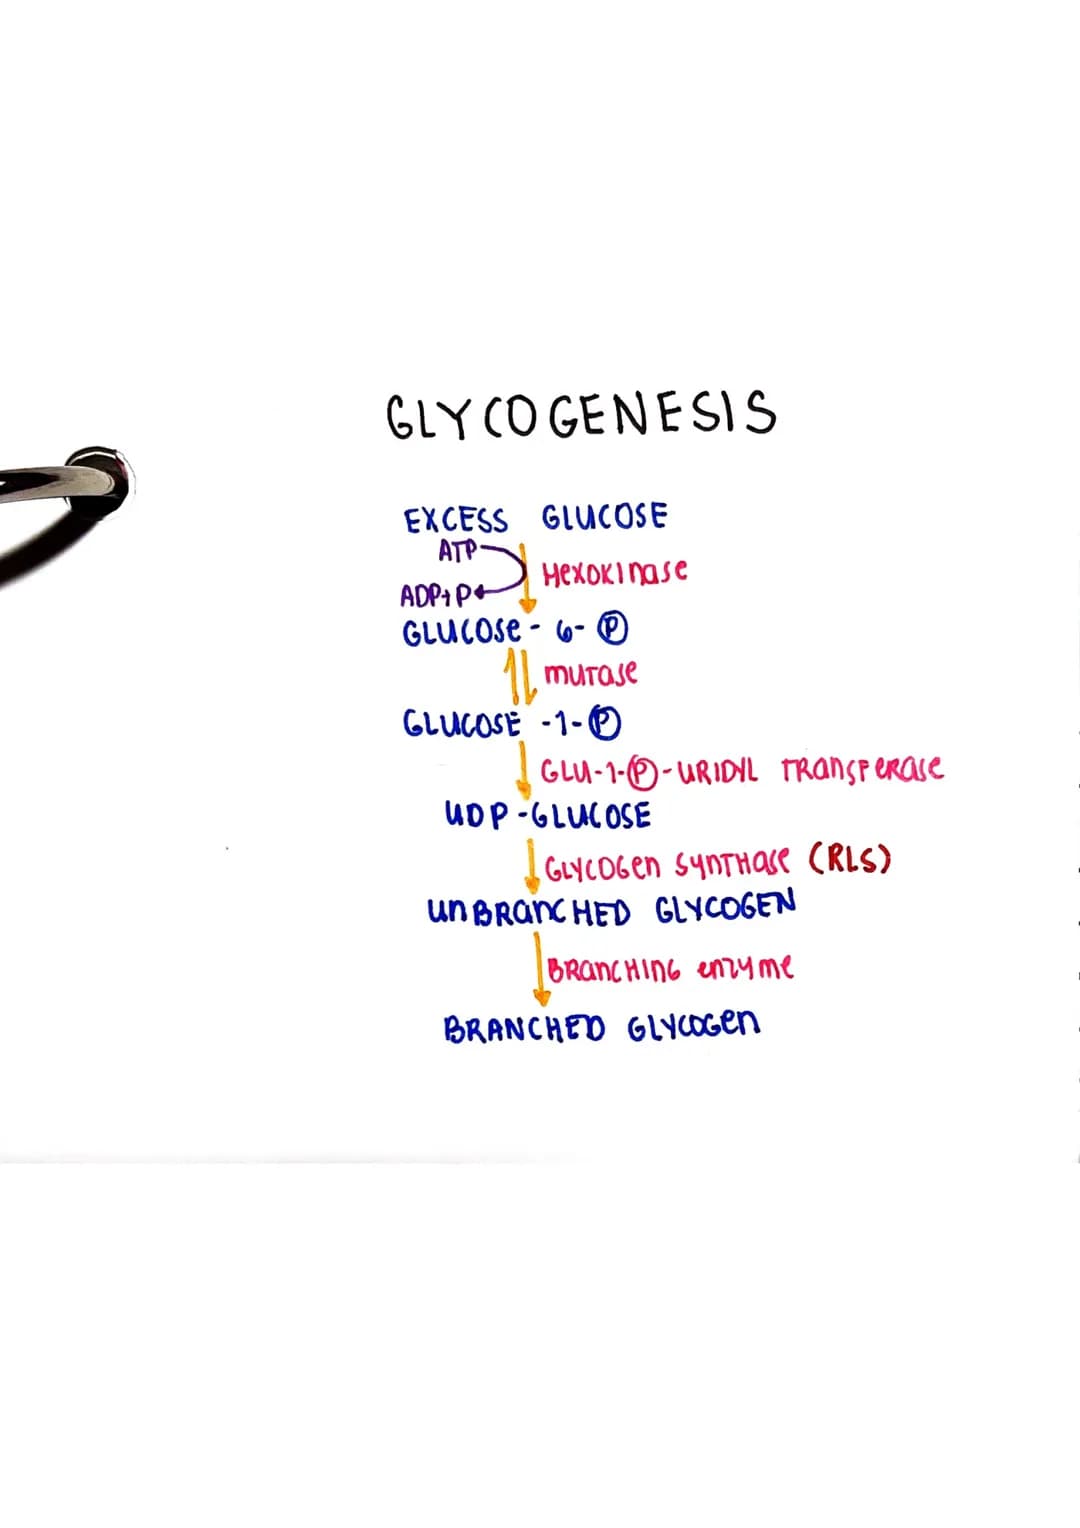 GLYCOGENESIS
EXCESS GLUCOSE
ATP
HEXOKINASE
ADP+P
GLUCOSE-6-Ⓟ
MUTASE
GLUCOSE-1-Ⓟ
GLU-1-Ⓟ-URIDYL TRANSFERASE
UDP-GLUCOSE
GLYCOGEN SYNTHASE (RLS)
UNBRANCHED GLYCOGEN
BRANCHING ENZYME
BRANCHED GLYCOGEN